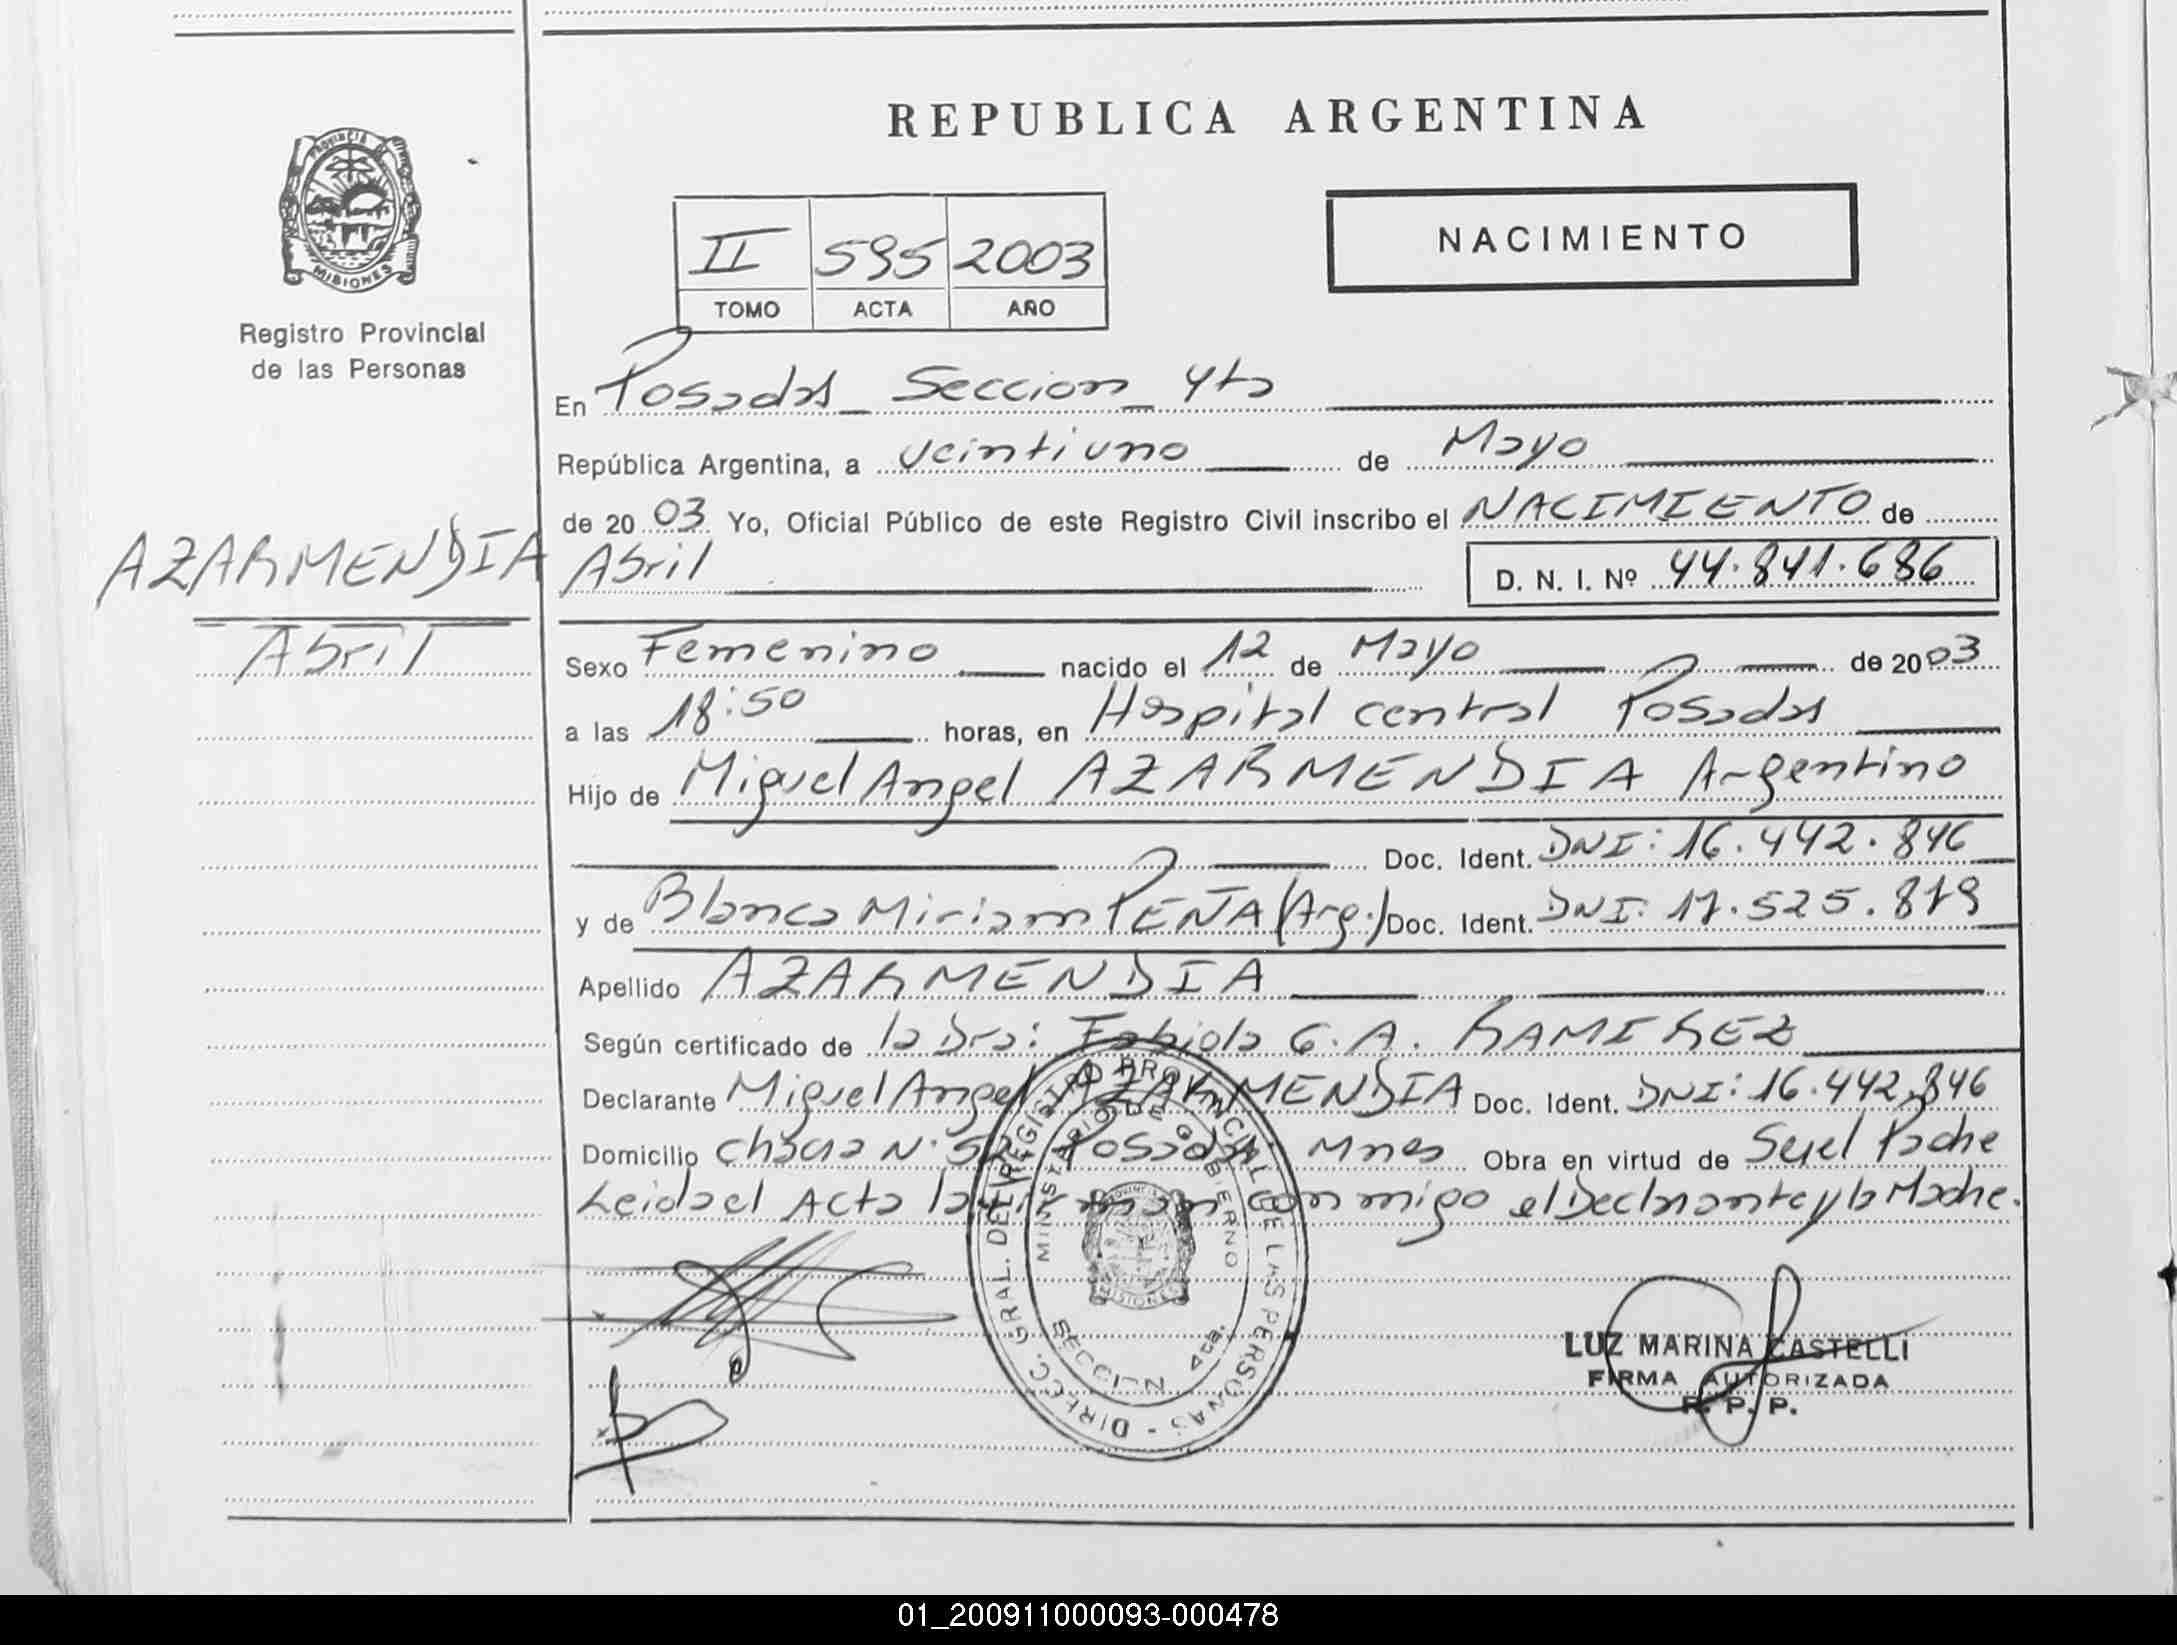 REPUBLICA ARGENTINA
PROVINCIA DE
MISIONES
Registro Provincial
de las Personas
NACIMIENTO
II 595 2003
TOMO ACTA AÑO
En Posadas Seccion 4ta
República Argentina, a veintiuno de Mayo
de 2003 Yo, Oficial Público de este Registro Civil inscribo el NACIMIENTO de
AZARMENDIA
Abril
Abril D. N. I. Nº 44.841.686
Sexo Femenino nacido el 12 de Mayo de 2003
a las 18:50 horas, en Hospital central Posadas
Hijo de Miguel Angel AZARMENDIA Argentino
Doc. Ident. DNI: 16.442.846
y de Blanca Miriam PEÑA (Arg.) Doc. Ident. DNI: 17.525.879
Apellido AZARMENDIA
Según certificado de la Dra: Fabiola G.A. RAMIREZ
Declarante Miguel Angel AZARMENDIA Doc. Ident. DNI: 16.442.846
Domicilio Chacra N° 52 Posadas Mnes Obra en virtud de Ser el Padre
Leida el Acta la firman conmigo el Declarante y la Madre.
DIRECC. GRAL. DEL REGISTRO PROVINCIAL DE LAS PERSONAS -
MINISTERIO DE GOBIERNO
MISIONES
SECCION 4ta.
LUZ MARINA CASTELLI
FIRMA AUTORIZADA
R. P. P.
01_200911000093-000478